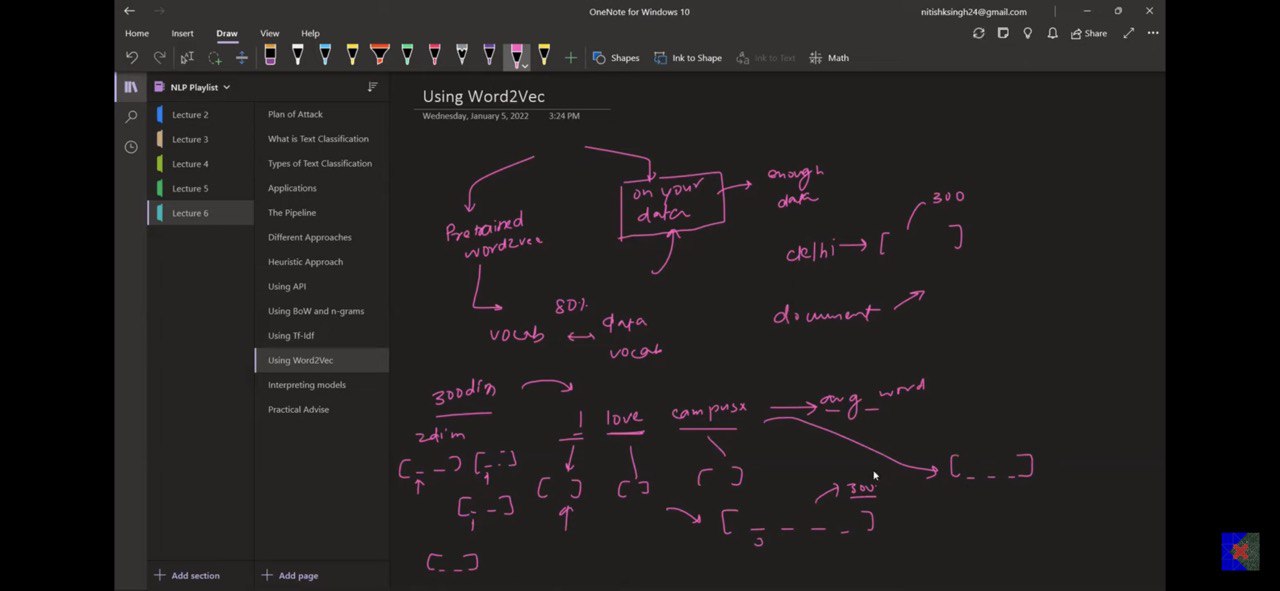 OneNote for Windows 10
nitishksingh24@gmail.com
Home Insert Draw View Help
Share
Shapes Ink to Shape Ink to Text Math
NLP Playlist
Lecture 2
Lecture 3
Lecture 4
Lecture 5
Lecture 6
Plan of Attack
What is Text Classification
Types of Text Classification
Applications
The Pipeline
Different Approaches
Heuristic Approach
Using API
Using BoW and n-grams
Using Tf-Idf
Using Word2Vec
Interpreting models
Practical Advise
Add section
Add page
Using Word2Vec
Wednesday, January 5, 2022 3:24 PM
Pretrained
word2vec
on your
data
enough
data
300
delhi → [ ]
document
80%
vocab ↔ data
vocab
300dim
2dim
I love campusx → avg word
[ _ _ ] [ _ _ ]
[ _ _ ]
[ _ _ ]
[ ] [ ] [ ]
[ _ _ _ ]
300
[ _ _ _ _ ]